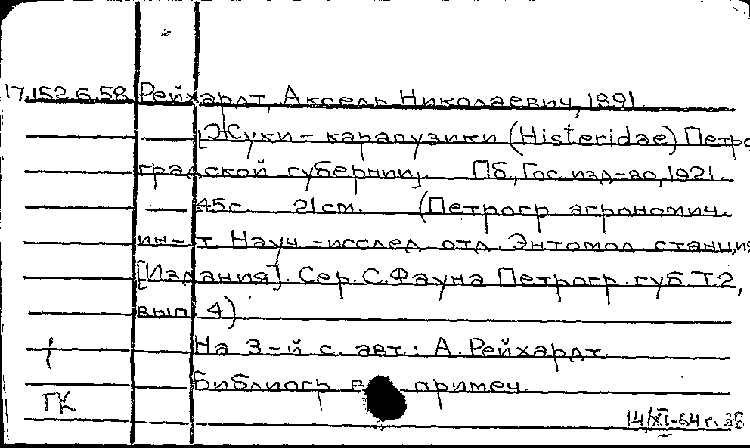 17.152.6.58 Рейхардт, Аксель Николаевич, 1891
[Жуки-карапузики (Histeridae) Петро
градской губернии]. Пб, Гос. изд-во, 1921.
45 с. 21 см. (Петрогр. агрономич.
ин-т. Науч.-исслед. отд. Энтомол. станция
[Издания]. Сер. С. Фауна Петрогр. губ. Т. 2,
вып. 4)
На 3-й с. авт.: А. Рейхардт.
Библиогр. в примеч.
ГК
14/XI-64 г.